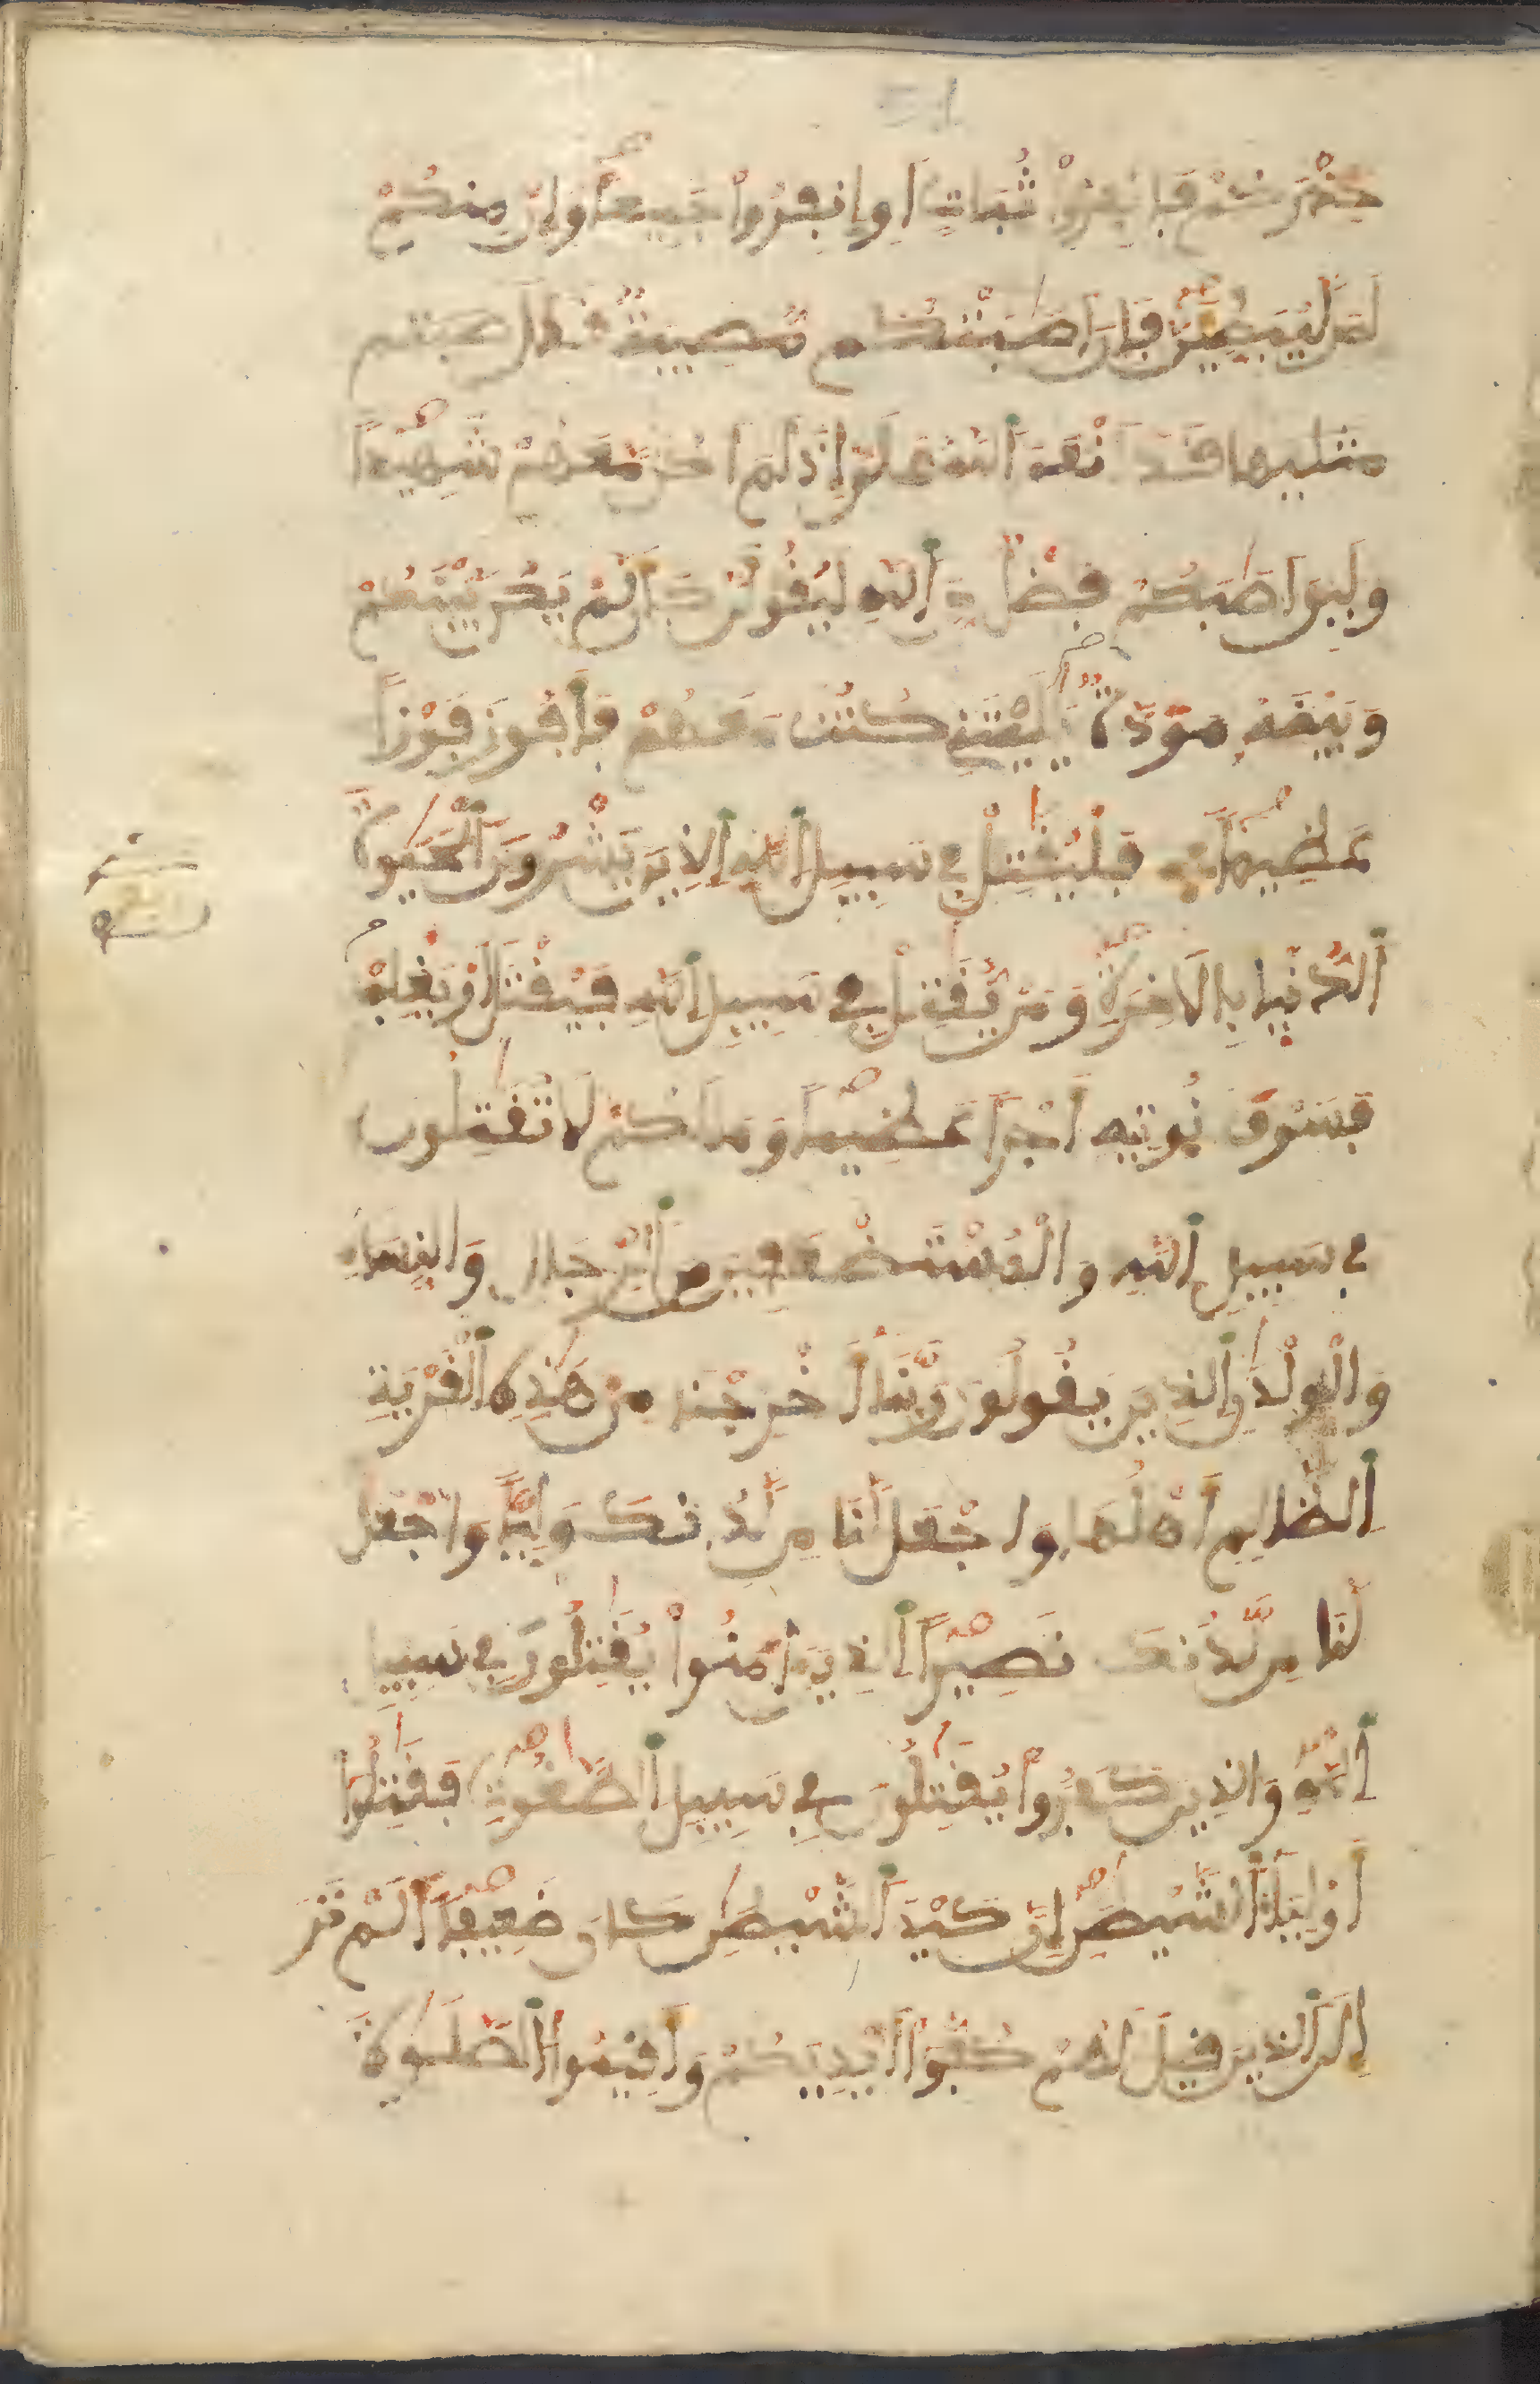 حِذْرَكُمْ فَانفِرُوا۟ ثُبَاتٍ اَوِ اِنفِرُوا۟ جَمِيعاً وَإِنَّ مِنكُمْ
لَمَن لَّيُبَطِّئَنَّ فَإِنَ اَصَٰبَتْكُم مُّصِيبَةٌ قَالَ
قَدَ اَنْعَمَ اَللَّهُ عَلَىَّ إِذْ لَمَ اَكُن مَّعَهُمْ شَهِيداً
وَلَئِنَ اَصَٰبَكُمْ فَضْلٌ مِّنَ اَللَّهِ لَيَقُولَنَّ كَأَن لَّمْ يَكُن بَيْنَكُمْ
وَبَيْنَهُۥ مَوَدَّةٌ يَٰلَيْتَنِے كُنتُ مَعَهُمْ فَأَفُوزَ فَوْزاً
عَظِيماً فَلْيُقَٰتِلْ فِے سَبِيلِ اِللَّهِ اِلذِينَ يَشْرُونَ اَلْحَيَوٰةَ
اَلدُّنْيَا بِالَاخِرَةِ وَمَنْ يُّقَٰتِلْ فِے سَبِيلِ اِللَّهِ فَيُقْتَلَ اَوْ يَغْلِبْ
فَسَوْفَ نُوتِيهِ أَجْراً عَظِيماً وَمَا لَكُمْ لَا تُقَٰتِلُونَ
فِے سَبِيلِ اِللَّهِ وَالْمُسْتَضْعَفِينَ مِنَ اَلرِّجَالِ وَالنِّسَاءِ
وَالْوِلْدَٰنِ اِلذِينَ يَقُولُونَ رَبَّنَا أَخْرِجْنَا مِنْ هَٰذِهِ اِلْقَرْيَةِ
اِلظَّالِمِ أَهْلُهَا وَاجْعَل لَّنَا مِن لَّدُنكَ وَلِيّاً وَاجْعَل
لَّنَا مِن لَّدُنكَ نَصِيراً اَلذِينَ ءَامَنُوا۟ يُقَٰتِلُونَ فِے سَبِيلِ
اِللَّهِ وَالذِينَ كَفَرُوا۟ يُقَٰتِلُونَ فِے سَبِيلِ اِلطَّٰغُوتِ فَقَٰتِلُوٓا۟
أَوْلِيَاءَ اَلشَّيْطَٰنِ إِنَّ كَيْدَ اَلشَّيْطَٰنِ كَانَ ضَعِيفاً اَلَمْ تَرَ
إِلَى اَلذِينَ قِيلَ لَهُمْ كُفُّوٓا۟ أَيْدِيَكُمْ وَأَقِيمُوا۟ اَلصَّلَوٰةَ